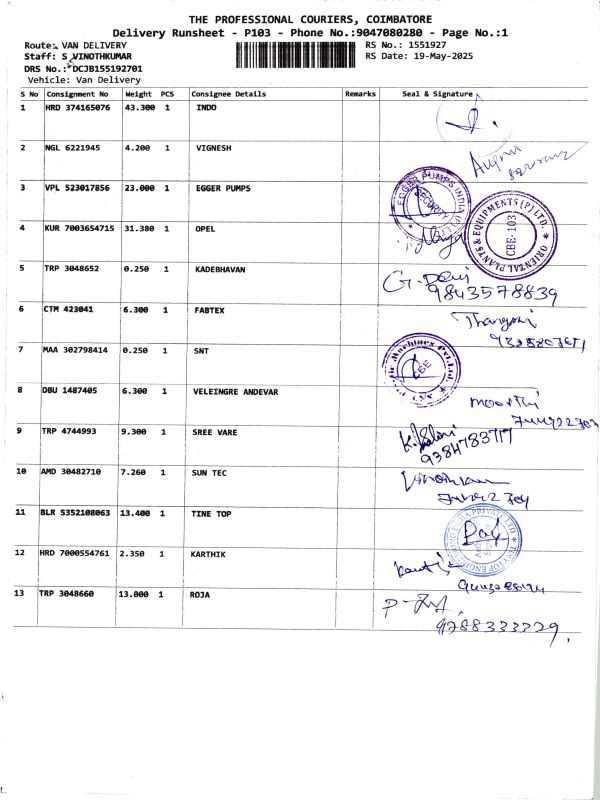 THE PROFESSIONAL COURIERS, COIMBATORE
Delivery Runsheet - P103 - Phone No.:9047080280 - Page No.:1
Route: VAN DELIVERY
RS No.: 1551927
Staff: S VINOTHKUMAR
RS Date: 19-May-2025
DRS No.: DCJB155192701
Vehicle: Van Delivery
S No Consignment No Weight PCS Consignee Details Remarks Seal & Signature
1 HRD 374165076 43.300 1 INDO
2 NGL 6221945 4.200 1 VIGNESH
3 VPL 523017856 23.000 1 EGGER PUMPS
EGGER PUMPS INDIA SECURITY
4 KUR 7003654715 31.380 1 OPEL
ORIENTAL PLANTS & EQUIPMENTS (P) LTD. CBE-103
5 TRP 3048652 0.250 1 KADEBHAVAN
9843578839
6 CTM 423041 6.300 1 FABTEX
7 MAA 302798414 0.250 1 SNT
Machines Pvt. Ltd. CBE
8 DBU 1487405 6.300 1 VELEINGRE ANDEVAR
Moorthi
9 TRP 4744993 9.300 1 SREE VARE
9384783717
10 AMD 30482710 7.260 1 SUN TEC
11 BLR 5352108063 13.400 1 TINE TOP
12 HRD 7000554761 2.350 1 KARTHIK
13 TRP 3048660 13.000 1 ROJA
9788333729